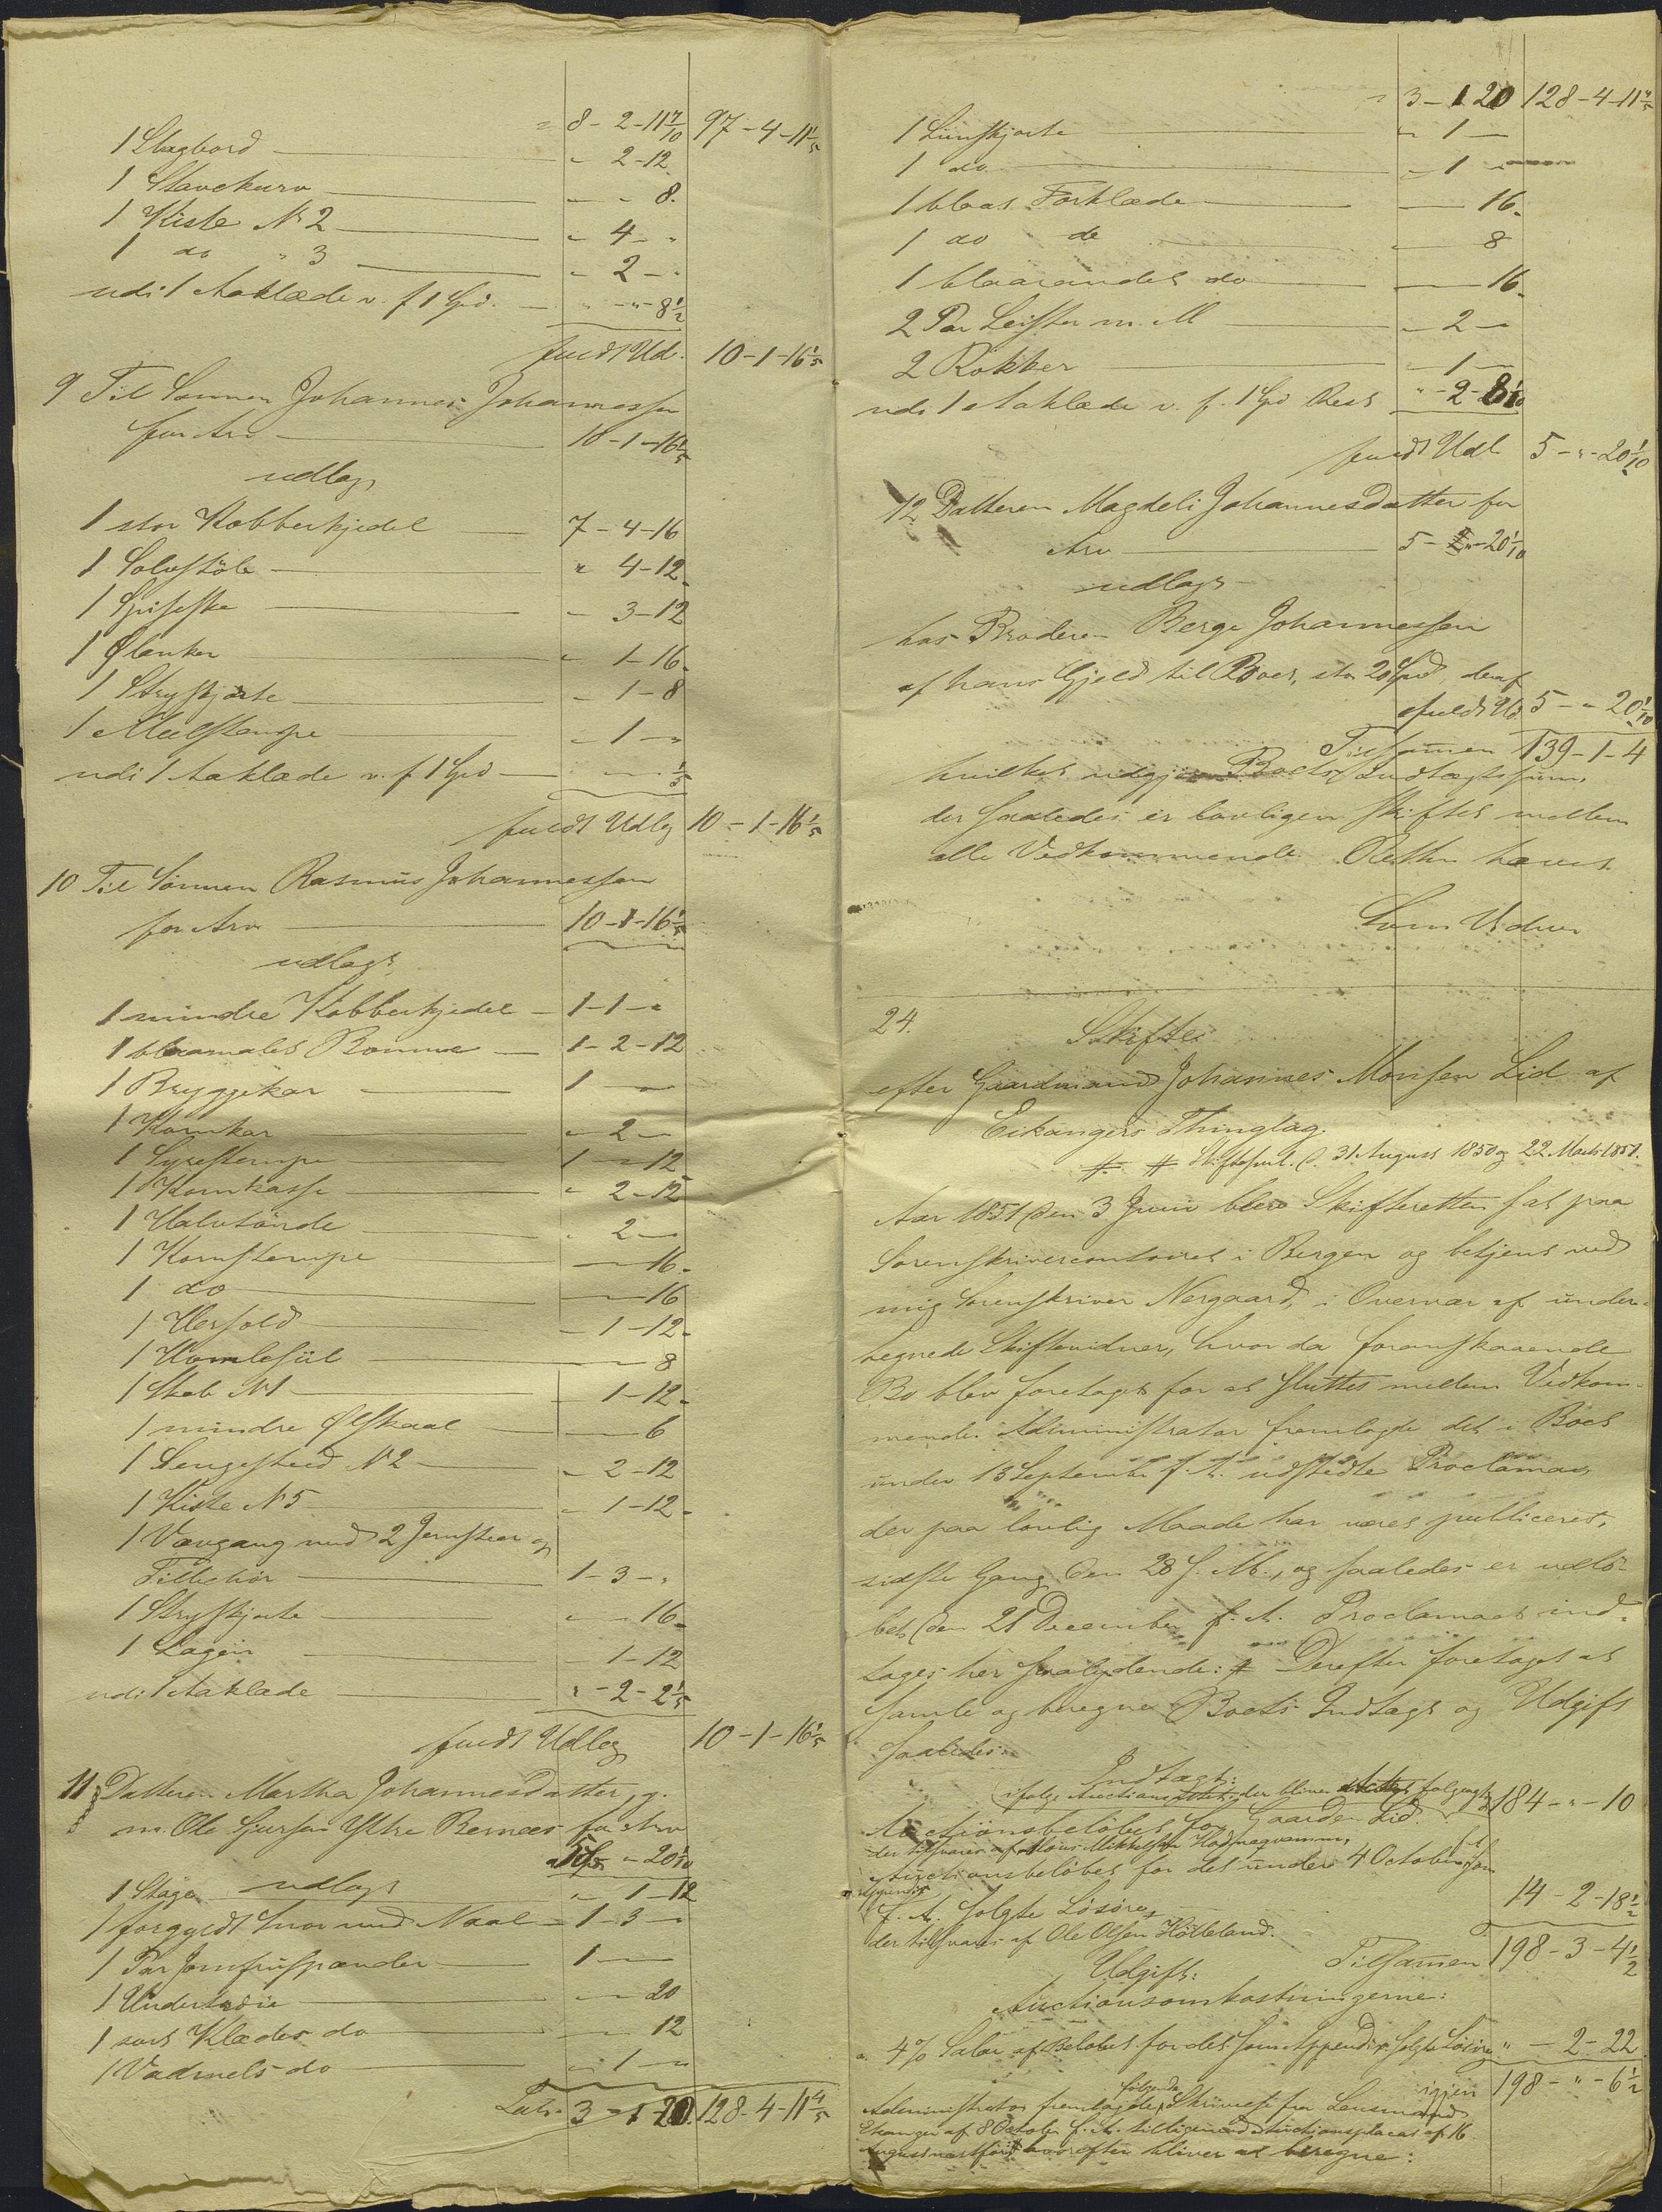 8 - 2 - 11 7/10 97 - 4 - 11 1/5
1 Slagbord " 2 - 12
1 Stavekurv " - 8.
1 Kiste N 2 " 4 - "
1 do " 3 " 2 - "
udi 1 Aaklæde v. f 1 Spd. " - " - 8 1/2
fuldt Udl. 10 - 1 - 16 1/5
9 Til Sønnen Johannes Johannessen
for Arv 10 - 1 - 16 1/5
udlagt
1 stor Kobberkjedel 7 - 4 - 16
1 Sølvstøb " 4 - 12
1 Spiseske " 3 - 12
1 Ølanker " 1 - 16
1 Stryskjorte " 1 - 8
1 Meelstampe " 1 - "
udi 1 Aaklæde v. f 1 Spd " - 1/5
fuldt Udlæg 10 - 1 - 16 1/5
10 Til Sønnen Rasmus Johannessen
for Arv 10 - 1 - 16 1/5
udlagt
1 mindre Kobberkjedel 1 - 1 - "
1 blaamalet Bomme 1 - 2 - 12
1 Bryggekar 1 - "
1 Kornkar " 2 - "
1 Syrestampe 1 - 12
1 Kornkasse " 2 - 12
1 Halvtønde " 2 - "
1 Kornstampe - 16
1 do - 16
1 Hersold - 1 - 12
1 Homlesiil - 8
1 Skab N 1 1 - 12
1 mindre Ølskaal - 6
1 Sengested N 2 " 2 - 12
1 Kiste N 5 " 1 - 12
1 Vævgang med 2 Jernsteer og
Tilbehør 1 - 3 - "
1 Stryskjorte " - 16
1 Lagen - 1 - 12
udi 1 Aaklæde " - 2 - 2 1/5
fuldt Udlæg 10 - 1 - 16 1/5
11 Datteren Martha Johannesdatter, g.
m. Ole Sjursen Yttre Bernæs for Arv
5 " - 20 1/10
udlagt
1 Stage " 1 - 12
1 forgyldt Snor med Naal 1 - 3 - "
1 Par Jomfruspænder 1 - "
1 Undertrøie " - 20
1 sort Klædes do " - 12
1 Vadmels do " 1 - "
Lats. 3 - 1 - 20. 128 - 4 - 11 4/5
3 - 1 20 128 - 4 - 11 4/5
1 Liinskjorte " 1 -
1 do " 1 -
1 blaat Forklæde - 16
1 do do - 8
1 blaarandet do - 16
2 Par Leister m. M " 2 - "
2 Rokker - 1 -
udi 1 Aaklæde v. f. 1 Spd Rest " - 2 - 8 1/10
fuldt Udl 5 - " - 20 1/10
12 Datteren Magdeli Johannesdatter for
Arv 5 - " - 20 1/10
udlagt
hos Broderen Berge Johannessen
af hans Gjeld til Boet, stor 20 Spd, deraf
fuldt Ud 5 - " 20 1/10
Tilsamen 139 - 1 - 4
hvilket udgjør Boets Indtægtssum,
der saaledes er lovligen skiftet mellem
alle Vedkommende. Retten hævet.
Som Vidner
24. Skifte
efter Gaardmand Johannes Monsen Lid af
Eikangers Thinglag.
# # Skifteprot. 31 August 1850 og 22 Marts 1851.
Aar 1851 den 3 Juni blev Skifteretten sat paa
Sorenskrivercontoiret i Bergen og betjent ved
mig Sorenskriver Nergaard, i Overvær af under-
tegnede Skiftevidner, hvor da foranstaaende
Bo blev foretaget for at sluttes mellem Vedkom-
mende. Administrator fremlagte det i Boet
under 13 September f. A. udstedte Proclama,
der paa lovlig Maade har været publiceret,
sidste Gang den 28 s. M., og saaledes er udlø-
bet den 21 December f. A. Proclamaet ind-
tages her saalydende: # Derefter foretoges at
samle og beregne Boets Indtægt og Udgift
saaledes:
Indtægt:
ifølge Auctions der bliver at følge
Auctionsbeløbet for Gaarden Lid 184 - " - 10
der tilsvares af Mons Mikkelsen
Auctionsbeløbet for det under 4 October
f. A. solgte Løsøre, 14 - 2 - 18 1/2
der tilsvares af Ole Olsen Kølleland.
Tilsamen 198 - 3 - 4 1/2
Udgift:
Auctionsomkostningerne:
a. 4% Salær af Beløbet for det som Appendix solgte Løsøre " - 2 - 22
igjen 198 - " - 6 1/2
Administrator fremlagde følgende Skrivelse fra Lensmand
Ekanger af 8 October f. A. tilligemed Auctionsplacat af 16
August næstforn hvorefter bliver at beregne: